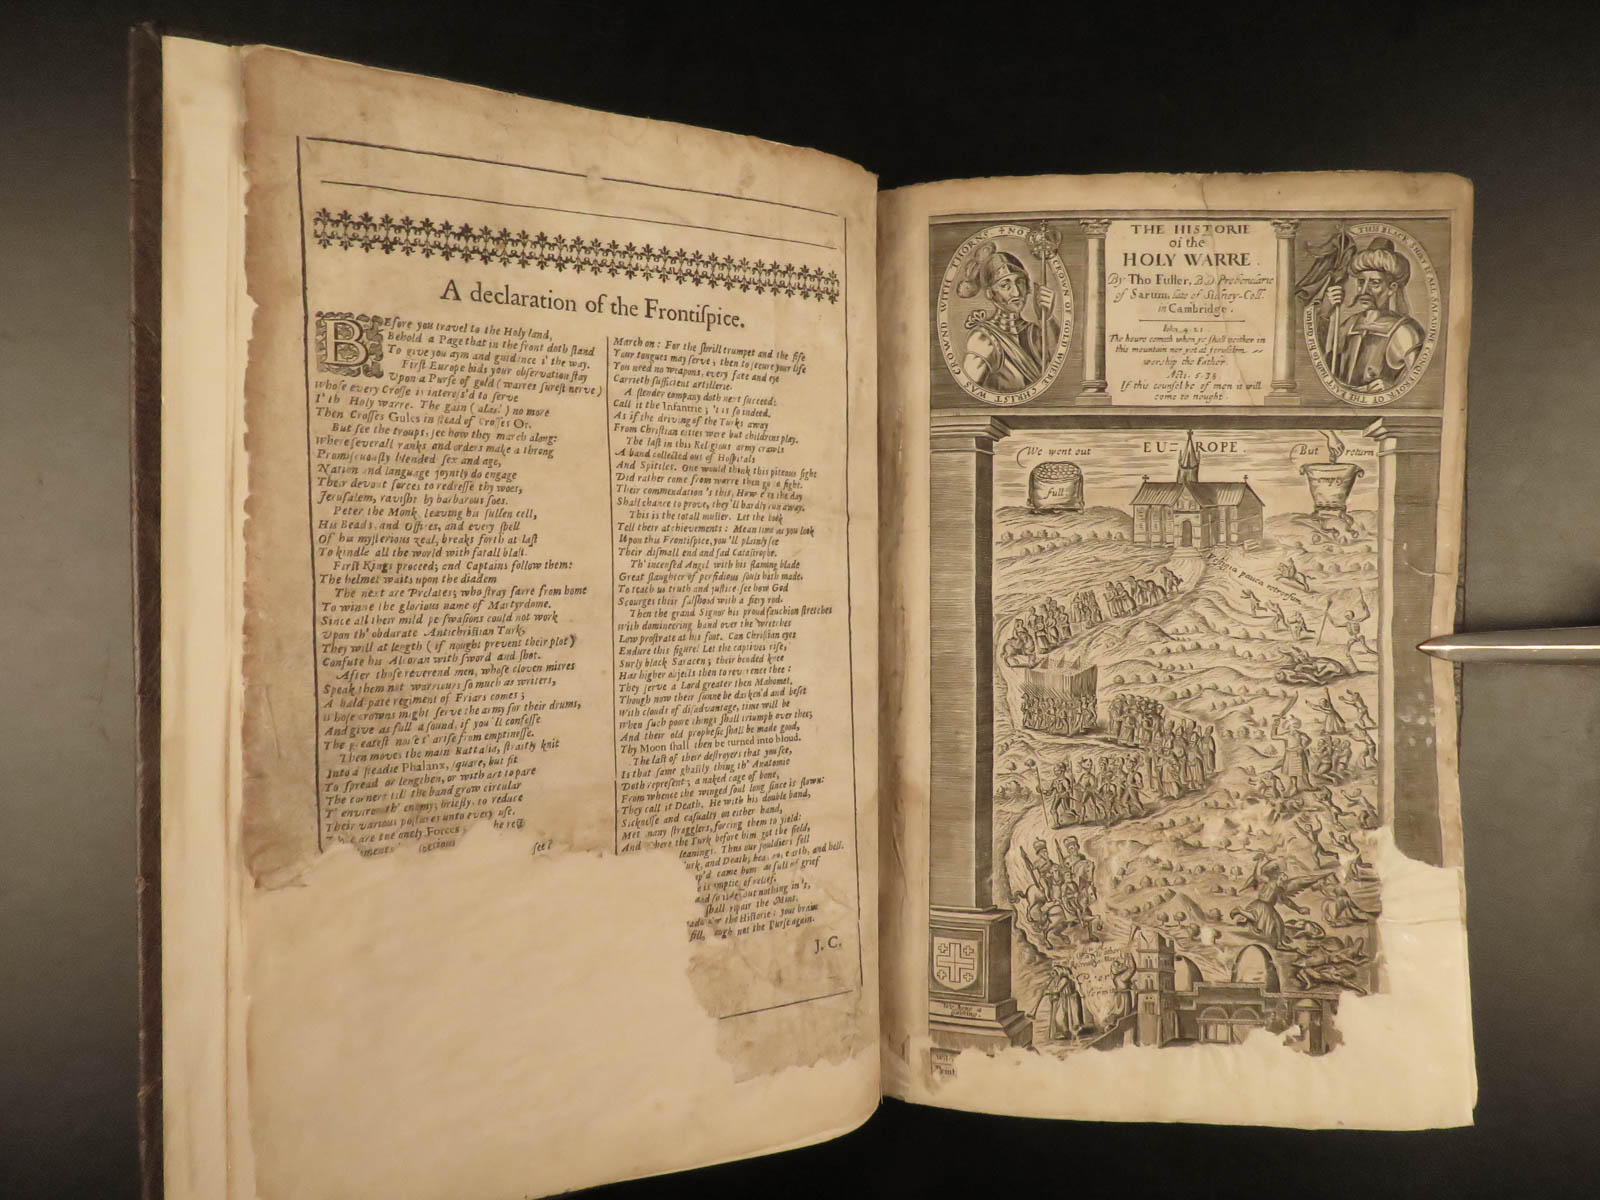 A declaration of the Frontiſpice.
BEfore you travel to the Holy land,
Behold a Page that in the front doth ſtand
To give you aym and guidance i' the way.
Firſt Europe bids your obſervation ſtay
Upon a Purſe of gold (warres fureſt nerve)
Whoſe every Croſſe is intereſs'd to ſerve
I' th' Holy warre. The gain (alas!) no more
Then Croſſes Gules in ſtead of Croſſes Or.
But ſee the troups, ſee how they march along:
Where ſeverall ranks and orders make a throng
Promiſcuouſly blended ſex and age,
Nation and language joyntly do engage
Their devout forces to redreſſe thy woes,
Jeruſalem, raviſht by barbarous foes.
Peter the Monk leaving his ſullen cell,
His Beads, and Offices, and every ſpell
Of his myſterious zeal, breaks forth at laſt
To kindle all the world with fatall blaſt.
Firſt Kings proceed; and Captains follow them:
The helmet waits upon the diadem
The next are Prelates; who ſtray farre from home
To winne the glorious name of Martyrdome.
Since all their mild perſwaſions could not work
Upon th' obdurate Antichriſtian Turk,
They will at length (if nought prevent their plot)
Confute his Alcoran with ſword and ſhot.
After thoſe reverend men, whoſe cloven mitres
Speak them not warriours ſo much as writers,
A bald-pate regiment of Friars comes;
Whoſe crowns might ſerve the army for their drums,
And give as full a ſound, if you'll confeſſe
The greateſt noiſes ariſe from emptineſſe.
Then moves the main Battalia, ſtraitly knit
Into a ſteadie Phalanx, ſquare, but fit
To ſpread or lengthen, or with art to pare
The corners till the band grow circular
T' environ th' enemy; briefly, to reduce
Their various poſtures unto every uſe.
are the onely Forces; the reſt
ſee?
March on: For the ſhrill trumpet and the fife
Your tongues may ſerve; then to ſecure your life
You need no weapons, every face and eye
Carrieth ſufficient artillerie.
A ſlender company doth next ſucceed:
Call it the Infantrie; 't is ſo indeed.
As if the driving of the Turks away
From Chriſtian cities were but childrens play.
The laſt in this Religious army crawls
A band collected out of Hoſpitals
And Spittles. One would think this piteous ſight
Did rather come from warre then go to fight.
Their commendation's this, How e're the day
Shall chance to prove, they'll hardly run away.
This is the totall muſter. Let the book
Tell their atchievements: Mean time as you look
Upon this Frontiſpice, you'll plainly ſee
Their diſmall end and ſad Cataſtrophe.
Th' incenſed Angel with his flaming blade
Great ſlaughter of perfidious ſouls hath made.
To teach us truth and juſtice ſee how God
Scourges their falſhood with a fiery rod.
Then the grand Signor his proud fauchion ſtretches
With domineering hand over the wretches
Low proſtrate at his foot. Can Chriſtian eyes
Endure this figure? Let the captives riſe,
Surly black Saracen; their bended knee
Has higher objects then to reverence thee:
They ſerve a Lord greater then Mahomet.
Though now their ſunne be darken'd and beſet
With clouds of diſadvantage, time will be
When ſuch poore things ſhall triumph over thee;
And their old propheſie ſhall be made good,
Thy Moon ſhall then be turned into bloud.
The laſt of their deſtroyers that you ſee,
Is that ſame ghaſtly thing th' Anatomie
Doth repreſent; a naked cage of bone,
From whence the winged ſoul long ſince is flown:
They call it Death. He with his double band,
Sickneſſe and caſualty on either hand,
Met many ſtragglers, forcing them to yield:
And where the Turk before him got the field,
leanings. Thus our ſouldiers fell
urk, and Death; heaven, earth, and hell.
p'd came home as full of grief
e is emptie of relief.
and ſo without nothing in't,
ſhall repair the Mint.
the Hiſtorie; your brain
fill, though not the Purſe again.
J. C.
THE HISTORIE
of the
HOLY WARRE.
By Tho Fuller, B.D. Prebendarie
of Sarum, late of Sidney-Coll:
in Cambridge.
Iohn 4. 21
The houre cometh when ye ſhall neither in
this mountain nor yet at Jeruſalem
worship the Father.
Acts. 5. 38
If this counſel be of men it will
come to nought.
NO CROWN OF GOLD WHERE CHRIST WAS CROWND WITH THORNE
THIS BLACK SHIRT IS ALL SALADINE CONQUEROUR OF THE EAST
EU=ROPE.
We went out
full
But return
empty
Veſtigia pauca retrorſum